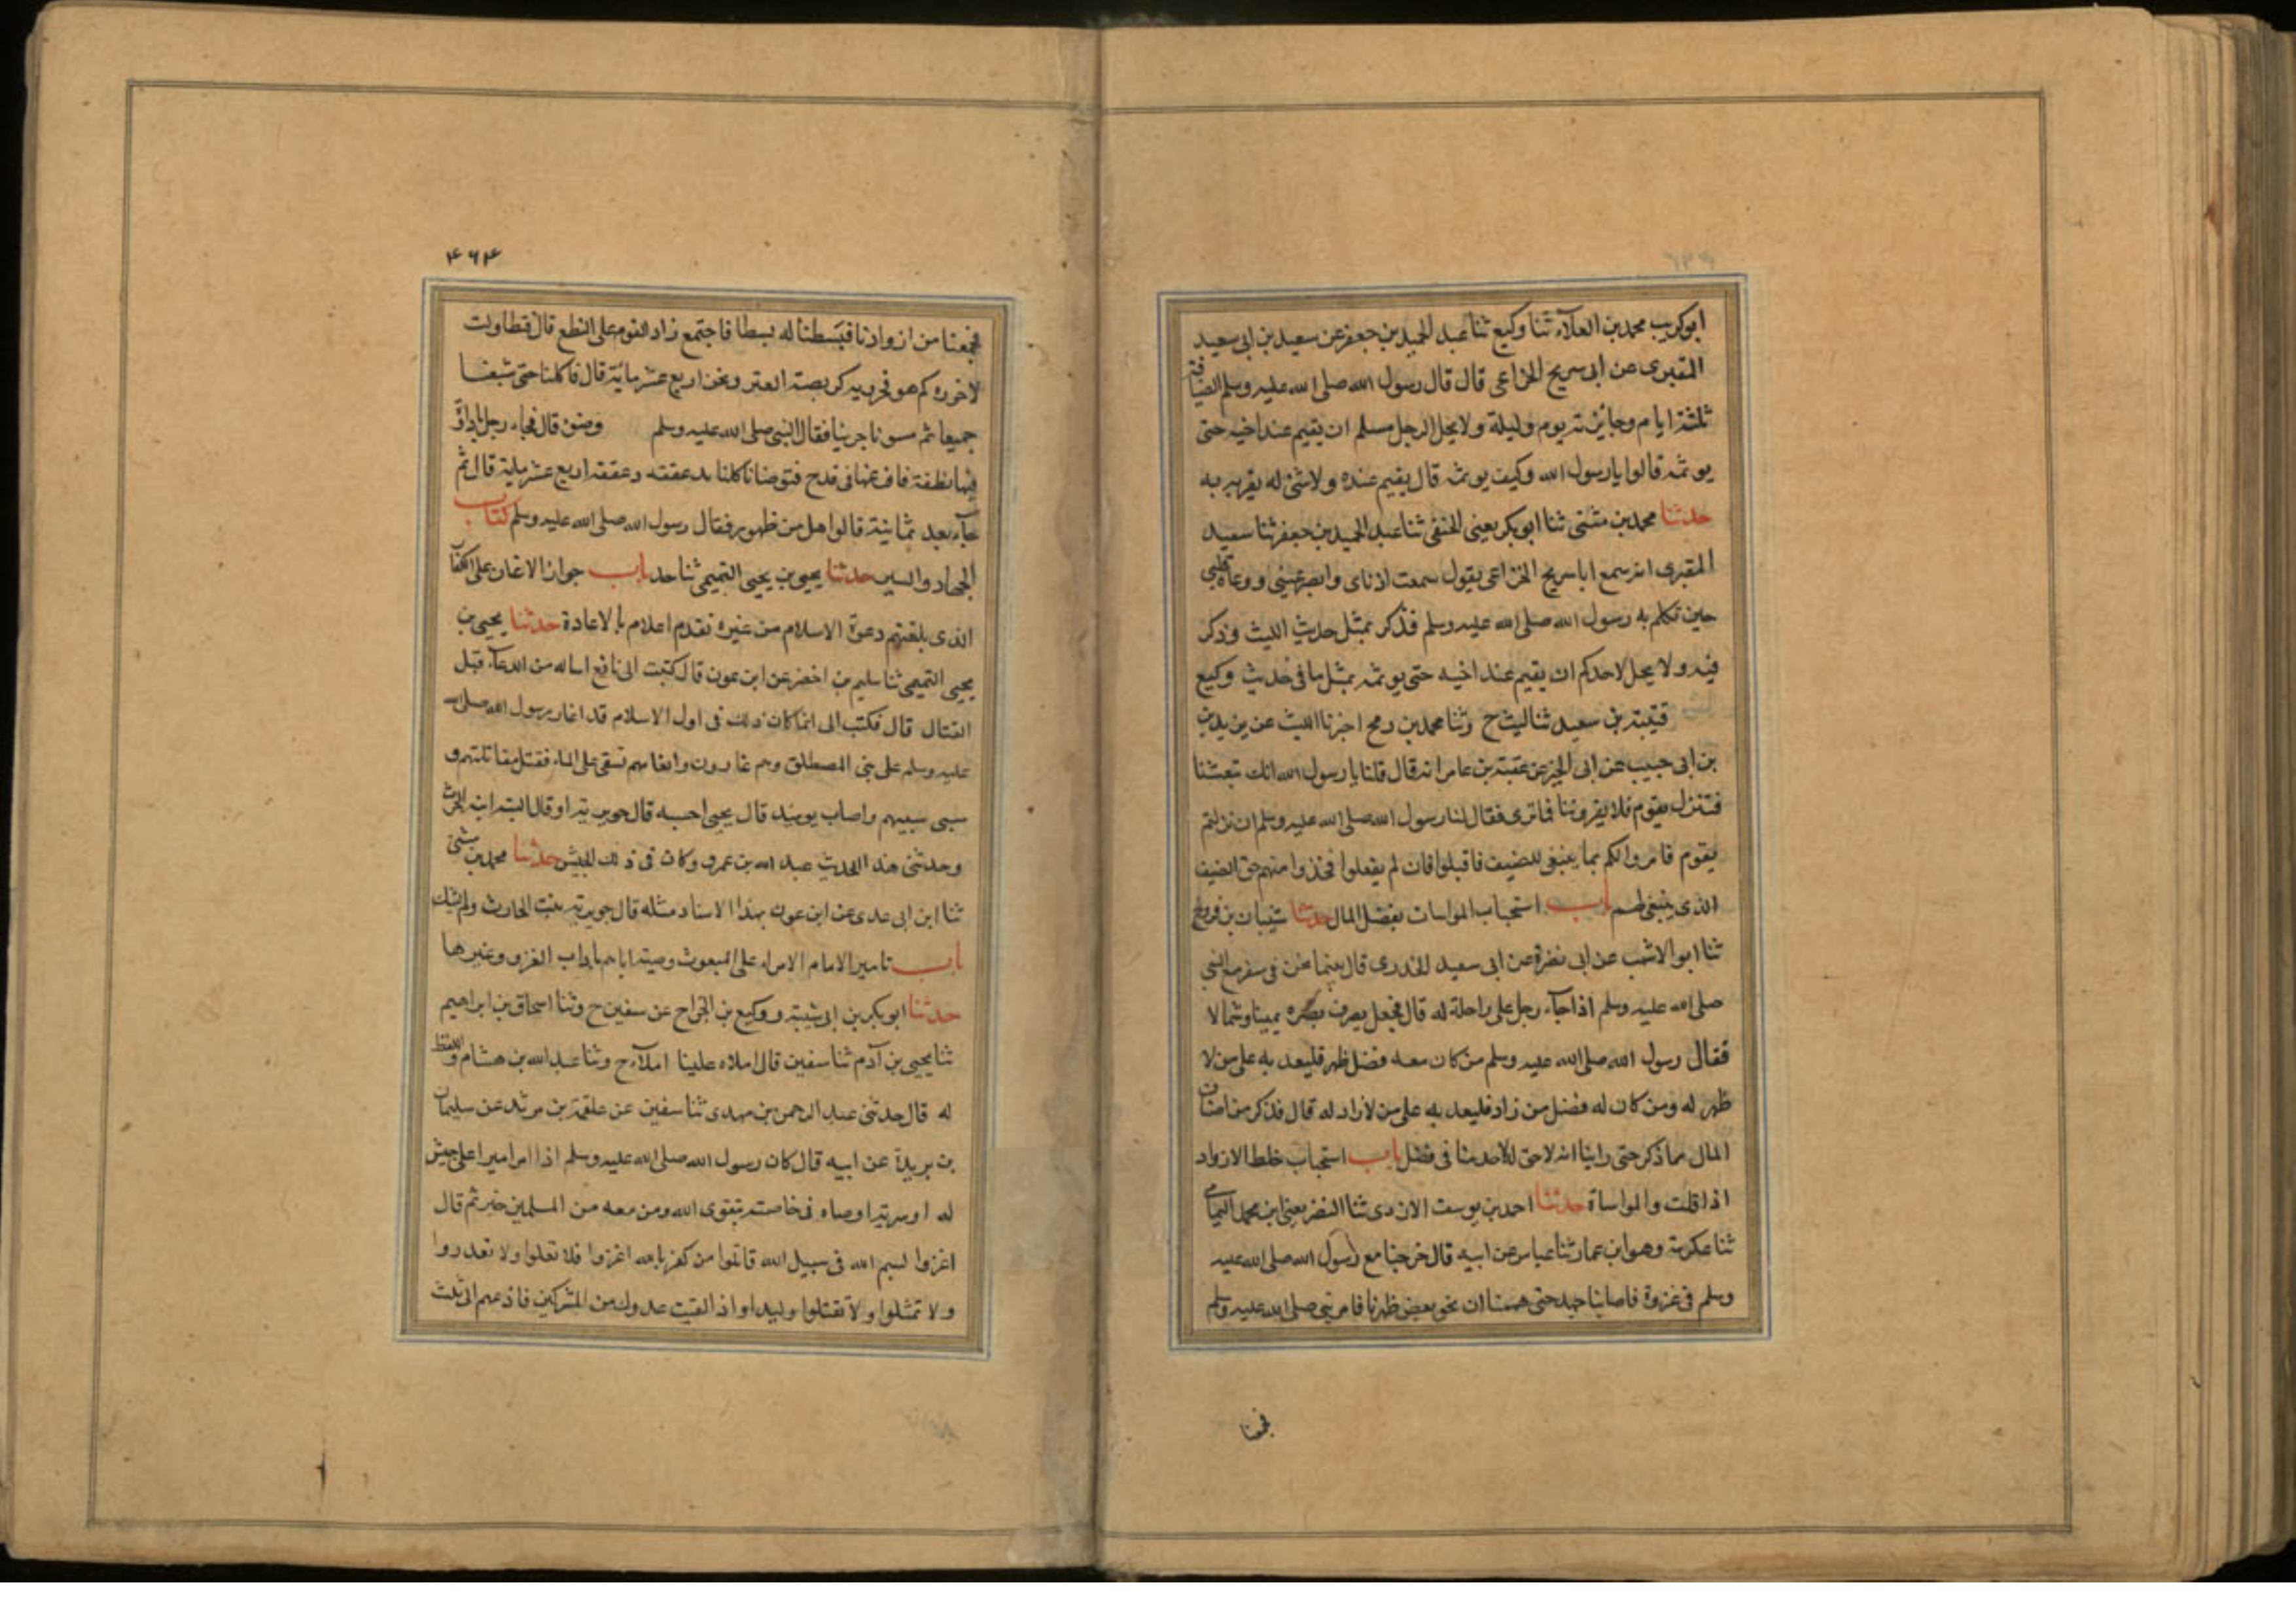 ابوكريب محمد بن العلاء ثنا وكيع ثنا عبد الحميد بن جعفر عن سعيد بن ابى سعيد
المقبرى عن ابى سريح الخزاعى قال قال رسول الله صلى الله عليه وسلم الضيافة
ثلثة ايام وجايزته يوم وليلة ولا يحل لرجل مسلم ان يقيم عند اخيه حتى
يوثمه قالوا يا رسول الله وكيف يوثمه قال يقيم عنده ولا شئ له يقريه به
حدثنا محمد بن مثنى ثنا ابو بكر يعنى الحنفى ثنا عبد الحميد بن جعفر ثنا سعيد
المقبرى انه سمع ابا سريح الخزاعى يقول سمعت اذناى وابصر عينى ووعاه قلبى
حين تكلم به رسول الله صلى الله عليه وسلم فذكر بمثل حديث الليث وذكر
فيه ولا يحل لاحدكم ان يقيم عند اخيه حتى يوثمه بمثل ما فى حديث وكيع
قتيبة بن سعيد ثنا ليث ح وثنا محمد بن رمح اخبرنا الليث عن يزيد بن
بن ابى حبيب عن ابى الخير عن عقبة بن عامر انه قال قلنا يا رسول الله انك تبعثنا
فتنزل بقوم فلا يقروننا فما ترى فقال لنا رسول الله صلى الله عليه وسلم ان نزلتم
بقوم فامروا لكم بما ينبغى للضيف فاقبلوا فان لم يفعلوا فخذوا منهم حق الضيف
الذى ينبغى لهم باب استحباب المواسات بفضل المال حدثنا شيبان بن فروخ
ثنا ابو الاشهب عن ابى نضرة عن ابى سعيد الخدرى قال بينما نحن فى سفر مع النبى
صلى الله عليه وسلم اذا جآء رجل على راحلة له قال فجعل يصرف بصره يمينا وشمالا
فقال رسول الله صلى الله عليه وسلم من كان معه فضل ظهر فليعد به على من لا
ظهر له ومن كان له فضل من زاد فليعد به على من لا زاد له قال فذكر من اصناف
المال ما ذكر حتى راينا انه لا حق لاحد منا فى فضل باب استحباب خلط الازواد
اذا قلت والمواساة حدثنا احمد بن يوسف الازدى ثنا النضر يعنى ابن محمد اليمامى
ثنا عكرمة وهو ابن عمار ثنا عياس عن ابيه قال خرجنا مع رسول الله صلى الله عليه
وسلم فى غزوة فاصابنا جهد حتى هممنا ان نحو بعض ظهرنا فامر نبى صلى الله عليه وسلم
فجمعنا
۴۶۴
فجمعنا من ازوادنا فبسطنا له بسطا فاجتمع زاد القوم على النطع قال فتطاولت
لاحزره كم هو فحزرته كربضة العنز ونحن اربع عشر ماية قال فاكلنا حتى شبعنا
جميعا ثم حسونا جربنا فقال النبى صلى الله عليه وسلم وضوء قال فجاء رجل باداوة
فيها نطفة فافرغها فى قدح فتوضانا كلنا ندعفقه دعفقة اربع عشر ماية قال ثم
جآء بعد ثمانية قالوا هل من طهور فقال رسول الله صلى الله عليه وسلم كتاب
الجهاد والسير حدثنا يحيى بن يحيى التميمى ثنا حد باب جواز الاغارة على الكفار
الذى بلغتهم دعوة الاسلام من غيره تقدم اعلام بالاعادة حدثنا يحيى بن
يحيى التميمى ثنا سليم بن اخضر عن ابن عون قال كتبت الى نافع اساله من الدعآء قبل
القتال قال فكتب الى انما كان ذلك فى اول الاسلام قد اغار رسول الله صلى الله
عليه وسلم على بنى المصطلق وهم غارون وانعامهم تسقى على الماء فقتل مقاتلتهم و
سبى سبيهم واصاب يوميذ قال يحيى احسبه قال جويرية او قال البتة ابنة الحرث
وحدثنى هذا الحديث عبد الله بن عمر وكان فى ذلك الجيش حدثنا محمد بن مثنى
ثنا ابن ابى عدى عن ابن عون بهذا الاسناد مثله قال جويرية بنت الحارث ولم يشك
باب تامير الامام الامراء على البعوث وصيته اياهم باداب الغزو وغيرها
حدثنا ابو بكر بن ابى شيبة ووكيع بن الجراح عن سفين ح وثنا اسحاق بن ابراهيم
ثنا يحيى بن آدم ثنا سفين قال املاه علينا املآء ح وثنا عبد الله بن هشام واللفظ
له قال حدثنى عبد الرحمن بن مهدى ثنا سفين عن علقمة بن مرثد عن سليمان
بن بريدة عن ابيه قال كان رسول الله صلى الله عليه وسلم اذا امر اميرا على جيش
له او سرية اوصاه فى خاصته بتقوى الله ومن معه من المسلمين خير ثم قال
اغزوا بسم الله فى سبيل الله قاتلوا من كفر بالله اغزوا فلا تغلوا ولا تغدروا
ولا تمثلوا ولا تقتلوا وليدا واذا لقيت عدوك من المشركين فادعهم الى ثلث